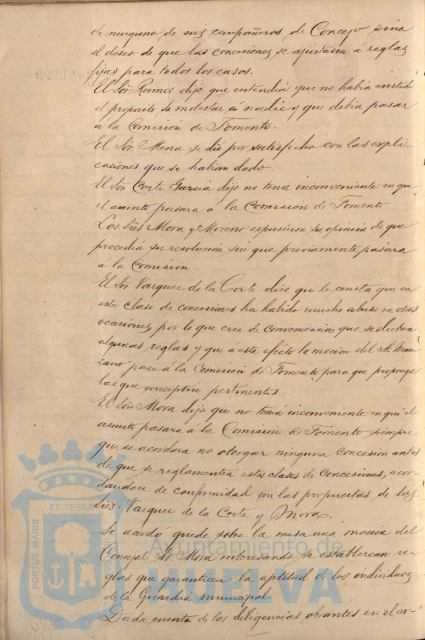 de ninguno de sus compañeros de Concejo sino
el deseo de que las concesiones se ajustasen a reglas
fijas para todos los casos.
El Sor. Ramos dijo que entendia que no habia existido
el proposito de molestar á nadie y que debia pasar
a la Comision de Fomento.
El Sor. Mora se dió por satisfecho con las expli-
caciones que se habian dado.
El Sor Corte Garcia dijo no tener inconveniente en que
el asunto pasara a la Comision de Fomento
Los Sres Mora y Moreno expusieron su opinion de que
procedia su resolucion sin que previamente pasara
a la Comision.
El Sor Vazquez de la Corte dice que le consta que en
esta clase de concesiones ha habido mucho abuso en otras
ocasiones, por lo que cree de conveniencia que se dicten
algunas reglas y que á este efecto la mocion del Sr.
pase á la Comision de Fomento para que proponga
las que conceptue pertinentes.
El Sor. Mora dijo que no tenia inconveniente en que el
asunto pasara á la Comision de Fomento siempre
que se acordara no otorgar ninguna concesion antes
de que se reglamenten estas clases de concesiones, acor-
dandose de conformidad con las propuestas de los
Sres Vazquez de la Corte y Mora.
Se acordó quede sobre la mesa una mocion del
Concejal Sr. Mora interesando se establezcan re-
glas que garanticen la aptitud de los individuos
de la Guardia municipal.
Dada cuenta de las diligencias obrantes en el ex-
PORTUS MARIS ET TERRAE
Ayuntamiento de
HUELVA